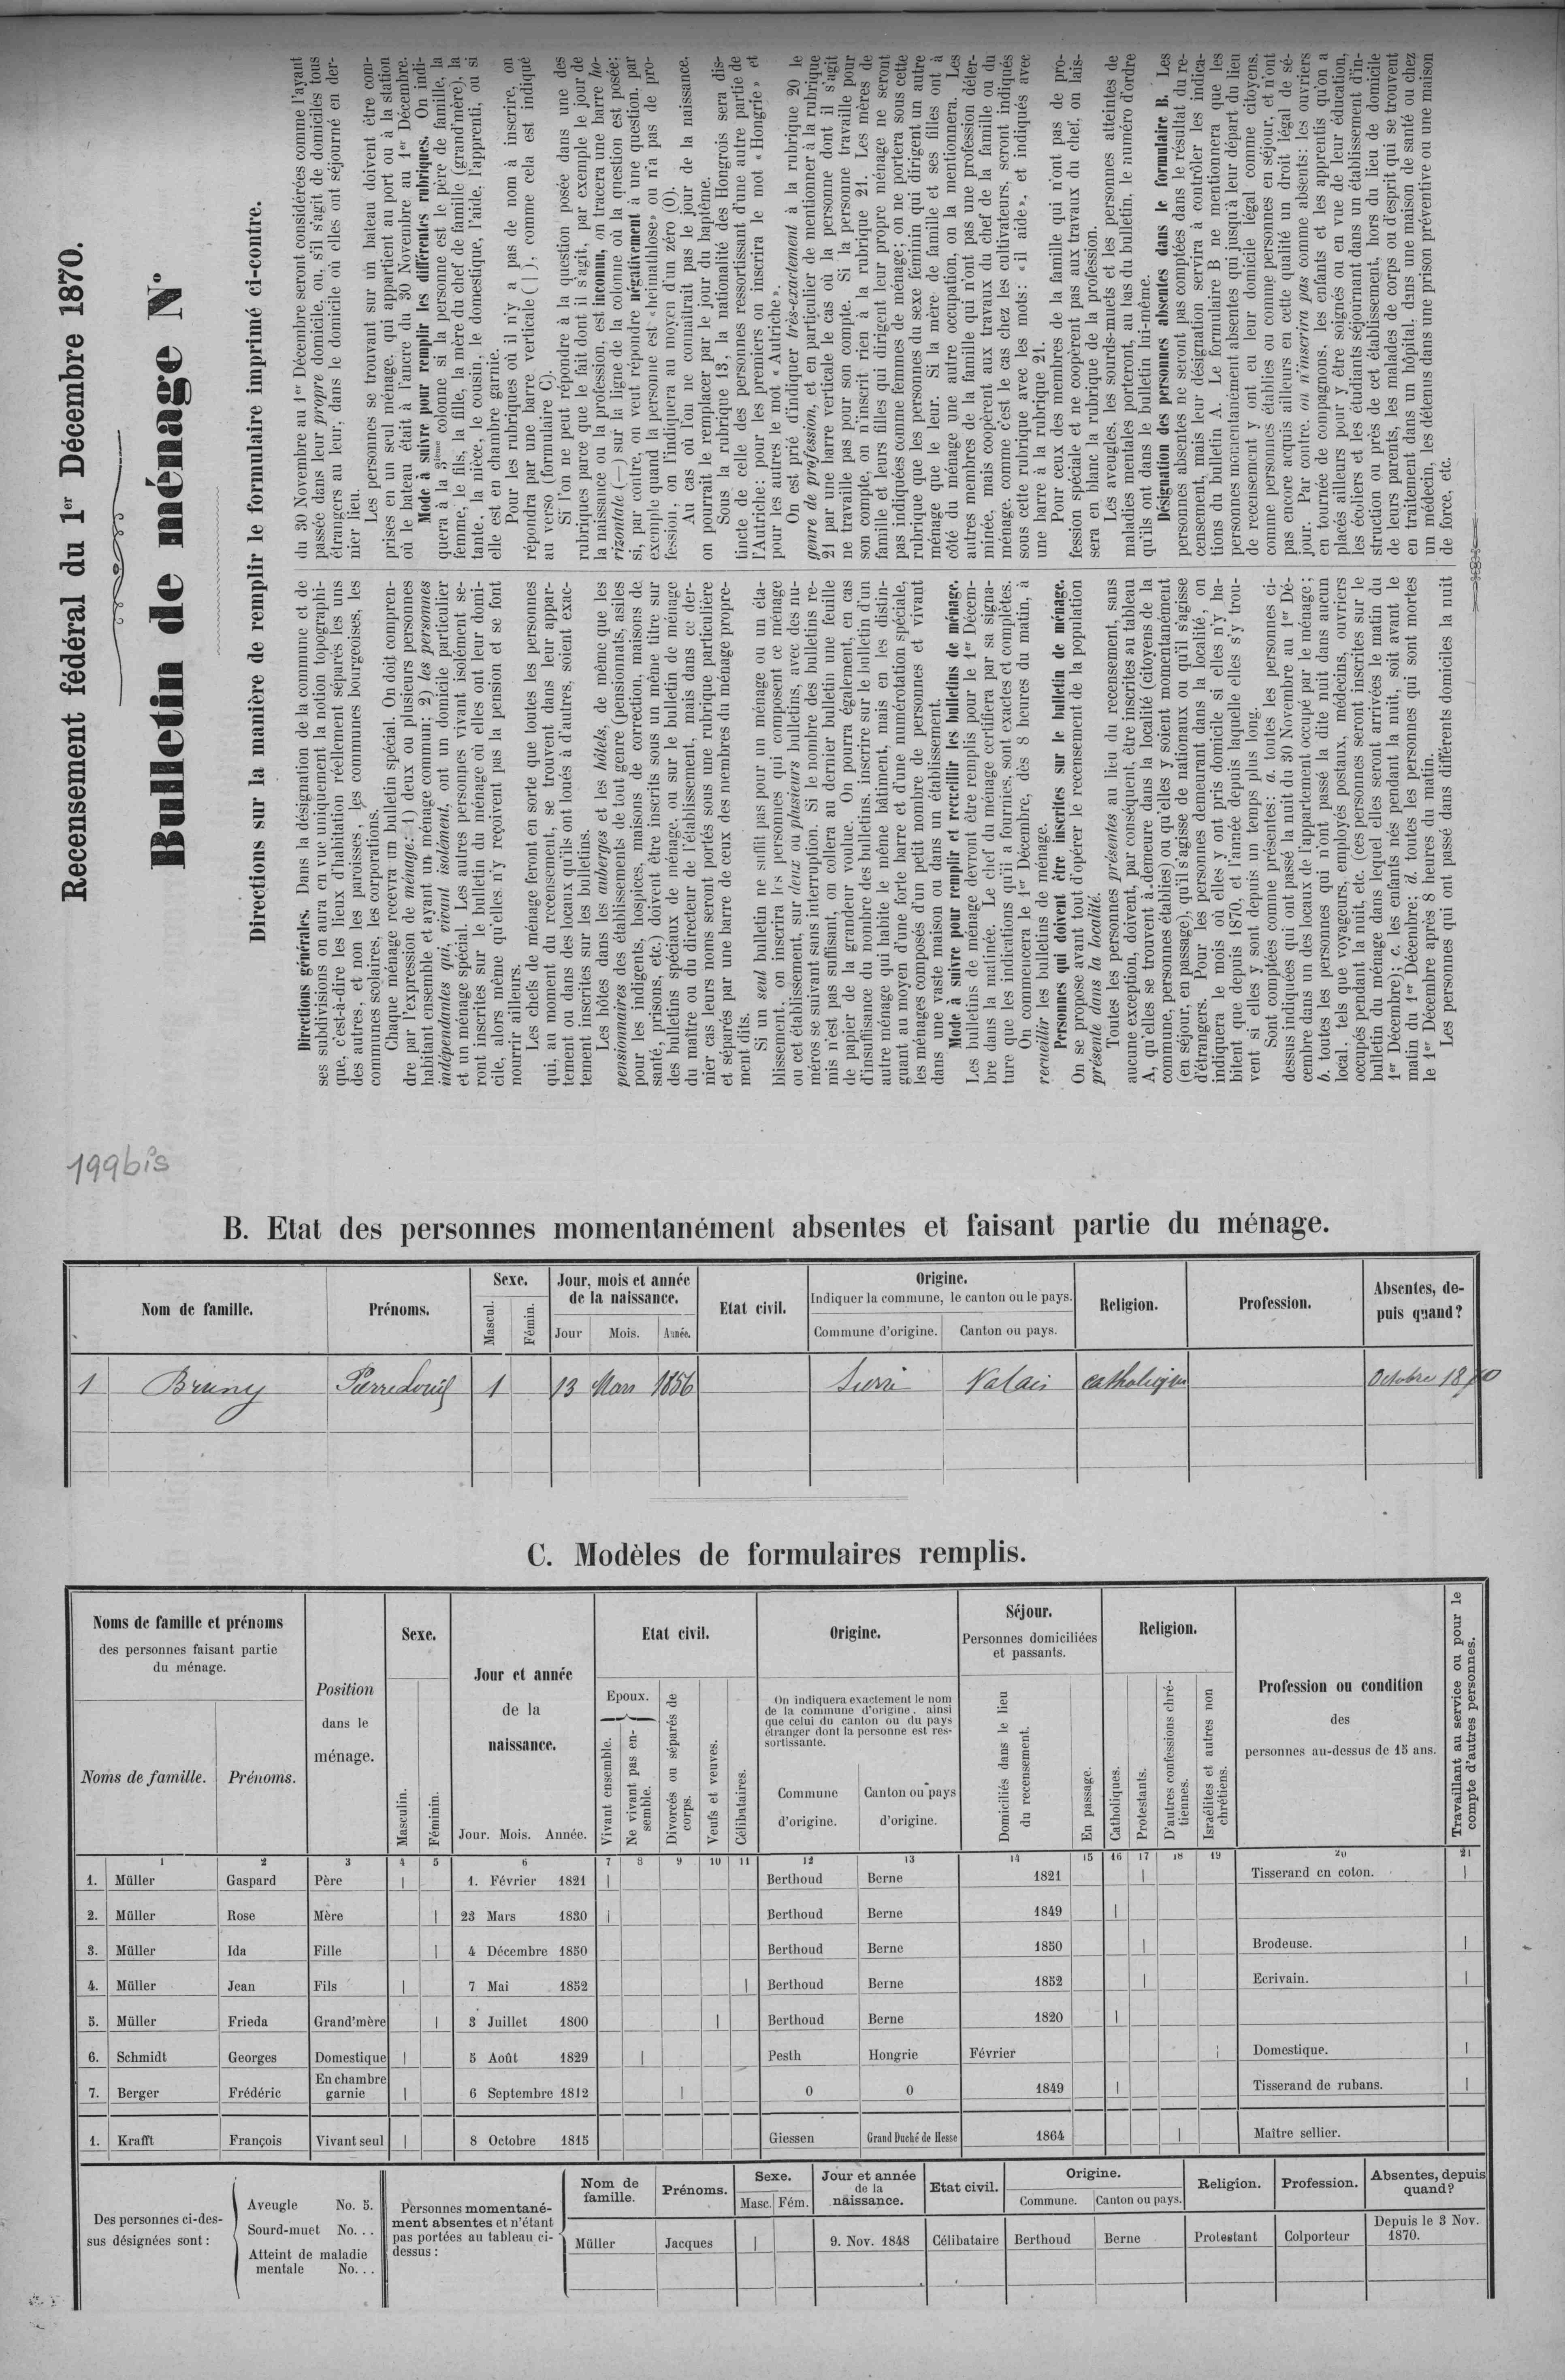 Recensement fédéral du 1er Décembre 1870.
Bulletin de ménage No
Directions sur la manière de remplir le formulaire imprimé ci-contre.
Directions générales. Dans la désignation de la commune et de
ses subdivisions on aura en vue uniquement la notion topographi-
que, c'est-à-dire les lieux d'habitation réellement séparés les uns
des autres, et non les paroisses, les communes bourgeoises, les
communes scolaires, les corporations.
Chaque ménage recevra un bulletin spécial. On doit compren-
dre par l'expression de ménage: 1) deux ou plusieurs personnes
habitant ensemble et ayant un ménage commun; 2) les personnes
indépendantes qui, vivant isolément, ont un domicile particulier
et un ménage spécial. Les autres personnes vivant isolément se-
ront inscrites sur le bulletin du ménage où elles ont leur domi-
cile, alors même qu'elles n'y reçoivent pas la pension et se font
nourrir ailleurs.
Les chefs de ménage feront en sorte que toutes les personnes
qui, au moment du recensement, se trouvent dans leur appar-
tement ou dans des locaux qu'ils ont loués à d'autres, soient exac-
tement inscrites sur les bulletins.
Les hôtes dans les auberges et les hôtels, de même que les
pensionnaires des établissements de tout genre (pensionnats, asiles
pour les indigents, hospices, maisons de correction, maisons de
santé, prisons, etc.) doivent être inscrits sous un même titre sur
des bulletins spéciaux de ménage, ou sur le bulletin de ménage
du maître ou du directeur de l'établissement, mais dans ce der-
nier cas leurs noms seront portés sous une rubrique particulière
et séparés par une barre de ceux des membres du ménage propre-
ment dits.
Si un seul bulletin ne suffit pas pour un ménage ou un éta-
blissement, on inscrira les personnes qui composent ce ménage
ou cet établissement, sur deux ou plusieurs bulletins, avec des nu-
méros se suivant sans interruption. Si le nombre des bulletins re-
mis n'est pas suffisant, on collera au dernier bulletin une feuille
de papier de la grandeur voulue. On pourra également, en cas
d'insuffisance du nombre des bulletins, inscrire sur le bulletin d'un
autre ménage qui habite le même bâtiment, mais en les distin-
guant au moyen d'une forte barre et d'une numérotation spéciale,
les ménages composés d'un petit nombre de personnes et vivant
dans une vaste maison ou dans un établissement.
Mode à suivre pour remplir et recueillir les bulletins de ménage.
Les bulletins de ménage devront être remplis pour le 1er Décem-
bre dans la matinée. Le chef du ménage certifiera par sa signa-
ture que les indications qu'il a fournies, sont exactes et complètes.
On commencera le 1er Décembre, dès 8 heures du matin, à
recueillir les bulletins de ménage.
Personnes qui doivent être inscrites sur le bulletin de ménage.
On se propose avant tout d'opérer le recensement de la population
présente dans la localité.
Toutes les personnes présentes au lieu du recensement, sans
aucune exception, doivent, par conséquent, être inscrites au tableau
A, qu'elles se trouvent à demeure dans la localité (citoyens de la
commune, personnes établies) ou qu'elles y soient momentanément
(en séjour, en passage), qu'il s'agisse de nationaux ou qu'il s'agisse
d'étrangers. Pour les personnes demeurant dans la localité, on
indiquera le mois où elles y ont pris domicile si elles n'y ha-
bitent que depuis 1870, et l'année depuis laquelle elles s'y trou-
vent si elles y sont depuis un temps plus long.
Sont comptées comme présentes: a. toutes les personnes ci-
dessus indiquées qui ont passé la nuit du 30 Novembre au 1er Dé-
cembre dans un des locaux de l'appartement occupé par le ménage;
b. toutes les personnes qui n'ont passé la dite nuit dans aucun
local, tels que voyageurs, employés postaux, médecins, ouvriers
occupés pendant la nuit, etc. (ces personnes seront inscrites sur le
bulletin du ménage dans lequel elles seront arrivées le matin du
1er Décembre); c. les enfants nés pendant la nuit, soit avant le
matin du 1er Décembre; d. toutes les personnes qui sont mortes
le 1er Décembre après 8 heures du matin.
Les personnes qui ont passé dans différents domiciles la nuit
du 30 Novembre au 1er Décembre seront considérées comme l'ayant
passée dans leur propre domicile, ou, s'il s'agit de domiciles tous
étrangers au leur, dans le domicile où elles ont séjourné en der-
nier lieu.
Les personnes se trouvant sur un bateau doivent être com-
prises en un seul ménage, qui appartient au port ou à la station
où le bateau était à l'ancre du 30 Novembre au 1er Décembre.
Mode à suivre pour remplir les différentes rubriques. On indi-
quera à la 3ième colonne si la personne est le père de famille, la
femme, le fils, la fille, la mère du chef de famille (grand'mère), la
tante, la nièce, le cousin, le domestique, l'aide, l'apprenti, ou si
elle est en chambre garnie.
Pour les rubriques où il n'y a pas de nom à inscrire, on
répondra par une barre verticale (|), comme cela est indiqué
au verso (formulaire C).
Si l'on ne peut répondre à la question posée dans une des
rubriques parce que le fait dont il s'agit, par exemple le jour de
la naissance ou la profession, est inconnu, on tracera une barre ho-
rizontale (—) sur la ligne de la colonne où la question est posée;
si, par contre, on veut répondre négativement à une question, par
exemple quand la personne est «heimathlose» ou n'a pas de pro-
fession, on l'indiquera au moyen d'un zéro (0).
Au cas où l'on ne connaîtrait pas le jour de la naissance,
on pourrait le remplacer par le jour du baptême.
Sous la rubrique 13, la nationalité des Hongrois sera dis-
tincte de celle des personnes ressortissant d'une autre partie de
l'Autriche: pour les premiers on inscrira le mot «Hongrie» et
pour les autres le mot «Autriche».
On est prié d'indiquer très-exactement à la rubrique 20 le
genre de profession, et en particulier de mentionner à la rubrique
21 par une barre verticale le cas où la personne dont il s'agit
ne travaille pas pour son compte. Si la personne travaille pour
son compte, on n'inscrit rien à la rubrique 21. Les mères de
famille et leurs filles qui dirigent leur propre ménage ne seront
pas indiquées comme femmes de ménage; on ne portera sous cette
rubrique que les personnes du sexe féminin qui dirigent un autre
ménage que le leur. Si la mère de famille et ses filles ont à
côté du ménage une autre occupation, on la mentionnera. Les
autres membres de la famille qui n'ont pas une profession déter-
minée, mais coopèrent aux travaux du chef de la famille ou du
ménage, comme c'est le cas chez les cultivateurs, seront indiqués
sous cette rubrique avec les mots: «il aide», et indiqués avec
une barre à la rubrique 21.
Pour ceux des membres de la famille qui n'ont pas de pro-
fession spéciale et ne coopèrent pas aux travaux du chef, on lais-
sera en blanc la rubrique de la profession.
Les aveugles, les sourds-muets et les personnes atteintes de
maladies mentales porteront, au bas du bulletin, le numéro d'ordre
qu'ils ont dans le bulletin lui-même.
Désignation des personnes absentes dans le formulaire B. Les
personnes absentes ne seront pas comptées dans le résultat du re-
censement, mais leur désignation servira à contrôler les indica-
tions du bulletin A. Le formulaire B ne mentionnera que les
personnes momentanément absentes qui jusqu'à leur départ du lieu
de recensement y ont eu leur domicile légal comme citoyens,
comme personnes établies ou comme personnes en séjour, et n'ont
pas encore acquis ailleurs en cette qualité un droit légal de sé-
jour. Par contre, on n'inscrira pas comme absents: les ouvriers
en tournée de compagnons, les enfants et les apprentis qu'on a
placés ailleurs pour y être soignés ou en vue de leur éducation,
les écoliers et les étudiants séjournant dans un établissement d'in-
struction ou près de cet établissement, hors du lieu de domicile
de leurs parents, les malades de corps ou d'esprit qui se trouvent
en traitement dans un hôpital, dans une maison de santé ou chez
un médecin, les détenus dans une prison préventive ou une maison
de force, etc.
199bis
B. Etat des personnes momentanément absentes et faisant partie du ménage.
Nom de famille. Prénoms. Sexe. Mascul. Fémin. Jour, mois et année de la naissance. Jour Mois. Année. Etat civil. Origine. Indiquer la commune, le canton ou le pays. Commune d'origine. Canton ou pays. Religion. Profession. Absentes, de-puis quand?
1 Bruny Pierre Louis 1 13 Mars 1856 Sierre Valais catholique Octobre 1870
C. Modèles de formulaires remplis.
Noms de famille et prénoms
des personnes faisant partie
du ménage.
Noms de famille. Prénoms.
Position
dans le
ménage.
Sexe.
Masculin. Féminin.
Jour et année
de la
naissance.
Jour. Mois. Année.
Etat civil.
Epoux.
Vivant ensemble.
Ne vivant pas en-
semble.
Divorcés ou séparés de
corps.
Veufs et veuves.
Célibataires.
Origine.
On indiquera exactement le nom
de la commune d'origine, ainsi
que celui du canton ou du pays
étranger dont la personne est res-
sortissante.
Commune
d'origine.
Canton ou pays
d'origine.
Séjour.
Personnes domiciliées
et passants.
Domiciliés dans le lieu
du recensement.
En passage.
Religion.
Catholiques.
Protestants.
D'autres confessions chré-
tiennes.
Israélites et autres non
chrétiens.
Profession ou condition
des
personnes au-dessus de 15 ans.
Travaillant au service ou pour le
compte d'autres personnes.
1 2 3 4 5 6 7 8 9 10 11 12 13 14 15 16 17 18 19 20 21
1. Müller Gaspard Père | 1. Février 1821 | Berthoud Berne 1821 | Tisserand en coton. |
2. Müller Rose Mère | 23 Mars 1830 | Berthoud Berne 1849 |
3. Müller Ida Fille | 4 Décembre 1850 Berthoud Berne 1850 | Brodeuse. |
4. Müller Jean Fils | 7 Mai 1852 | Berthoud Berne 1852 | Ecrivain. |
5. Müller Frieda Grand'mère | 3 Juillet 1800 | Berthoud Berne 1820 |
6. Schmidt Georges Domestique | 5 Août 1829 | Pesth Hongrie Février | Domestique. |
7. Berger Frédéric En chambre garnie | 6 Septembre 1812 | 0 0 1849 | Tisserand de rubans. |
1. Krafft François Vivant seul | 8 Octobre 1815 Giessen Grand Duché de Hesse 1864 | Maître sellier.
Des personnes ci-des-
sus désignées sont:
Aveugle No. 5.
Sourd-muet No. . .
Atteint de maladie
mentale No. . .
Personnes momentané-
ment absentes et n'étant
pas portées au tableau ci-
dessus:
Nom de famille. Prénoms. Sexe. Masc. Fém. Jour et année de la naissance. Etat civil. Origine. Commune. Canton ou pays. Religion. Profession. Absentes, depuis quand?
Müller Jacques | 9. Nov. 1848 Célibataire Berthoud Berne Protestant Colporteur Depuis le 3 Nov. 1870.